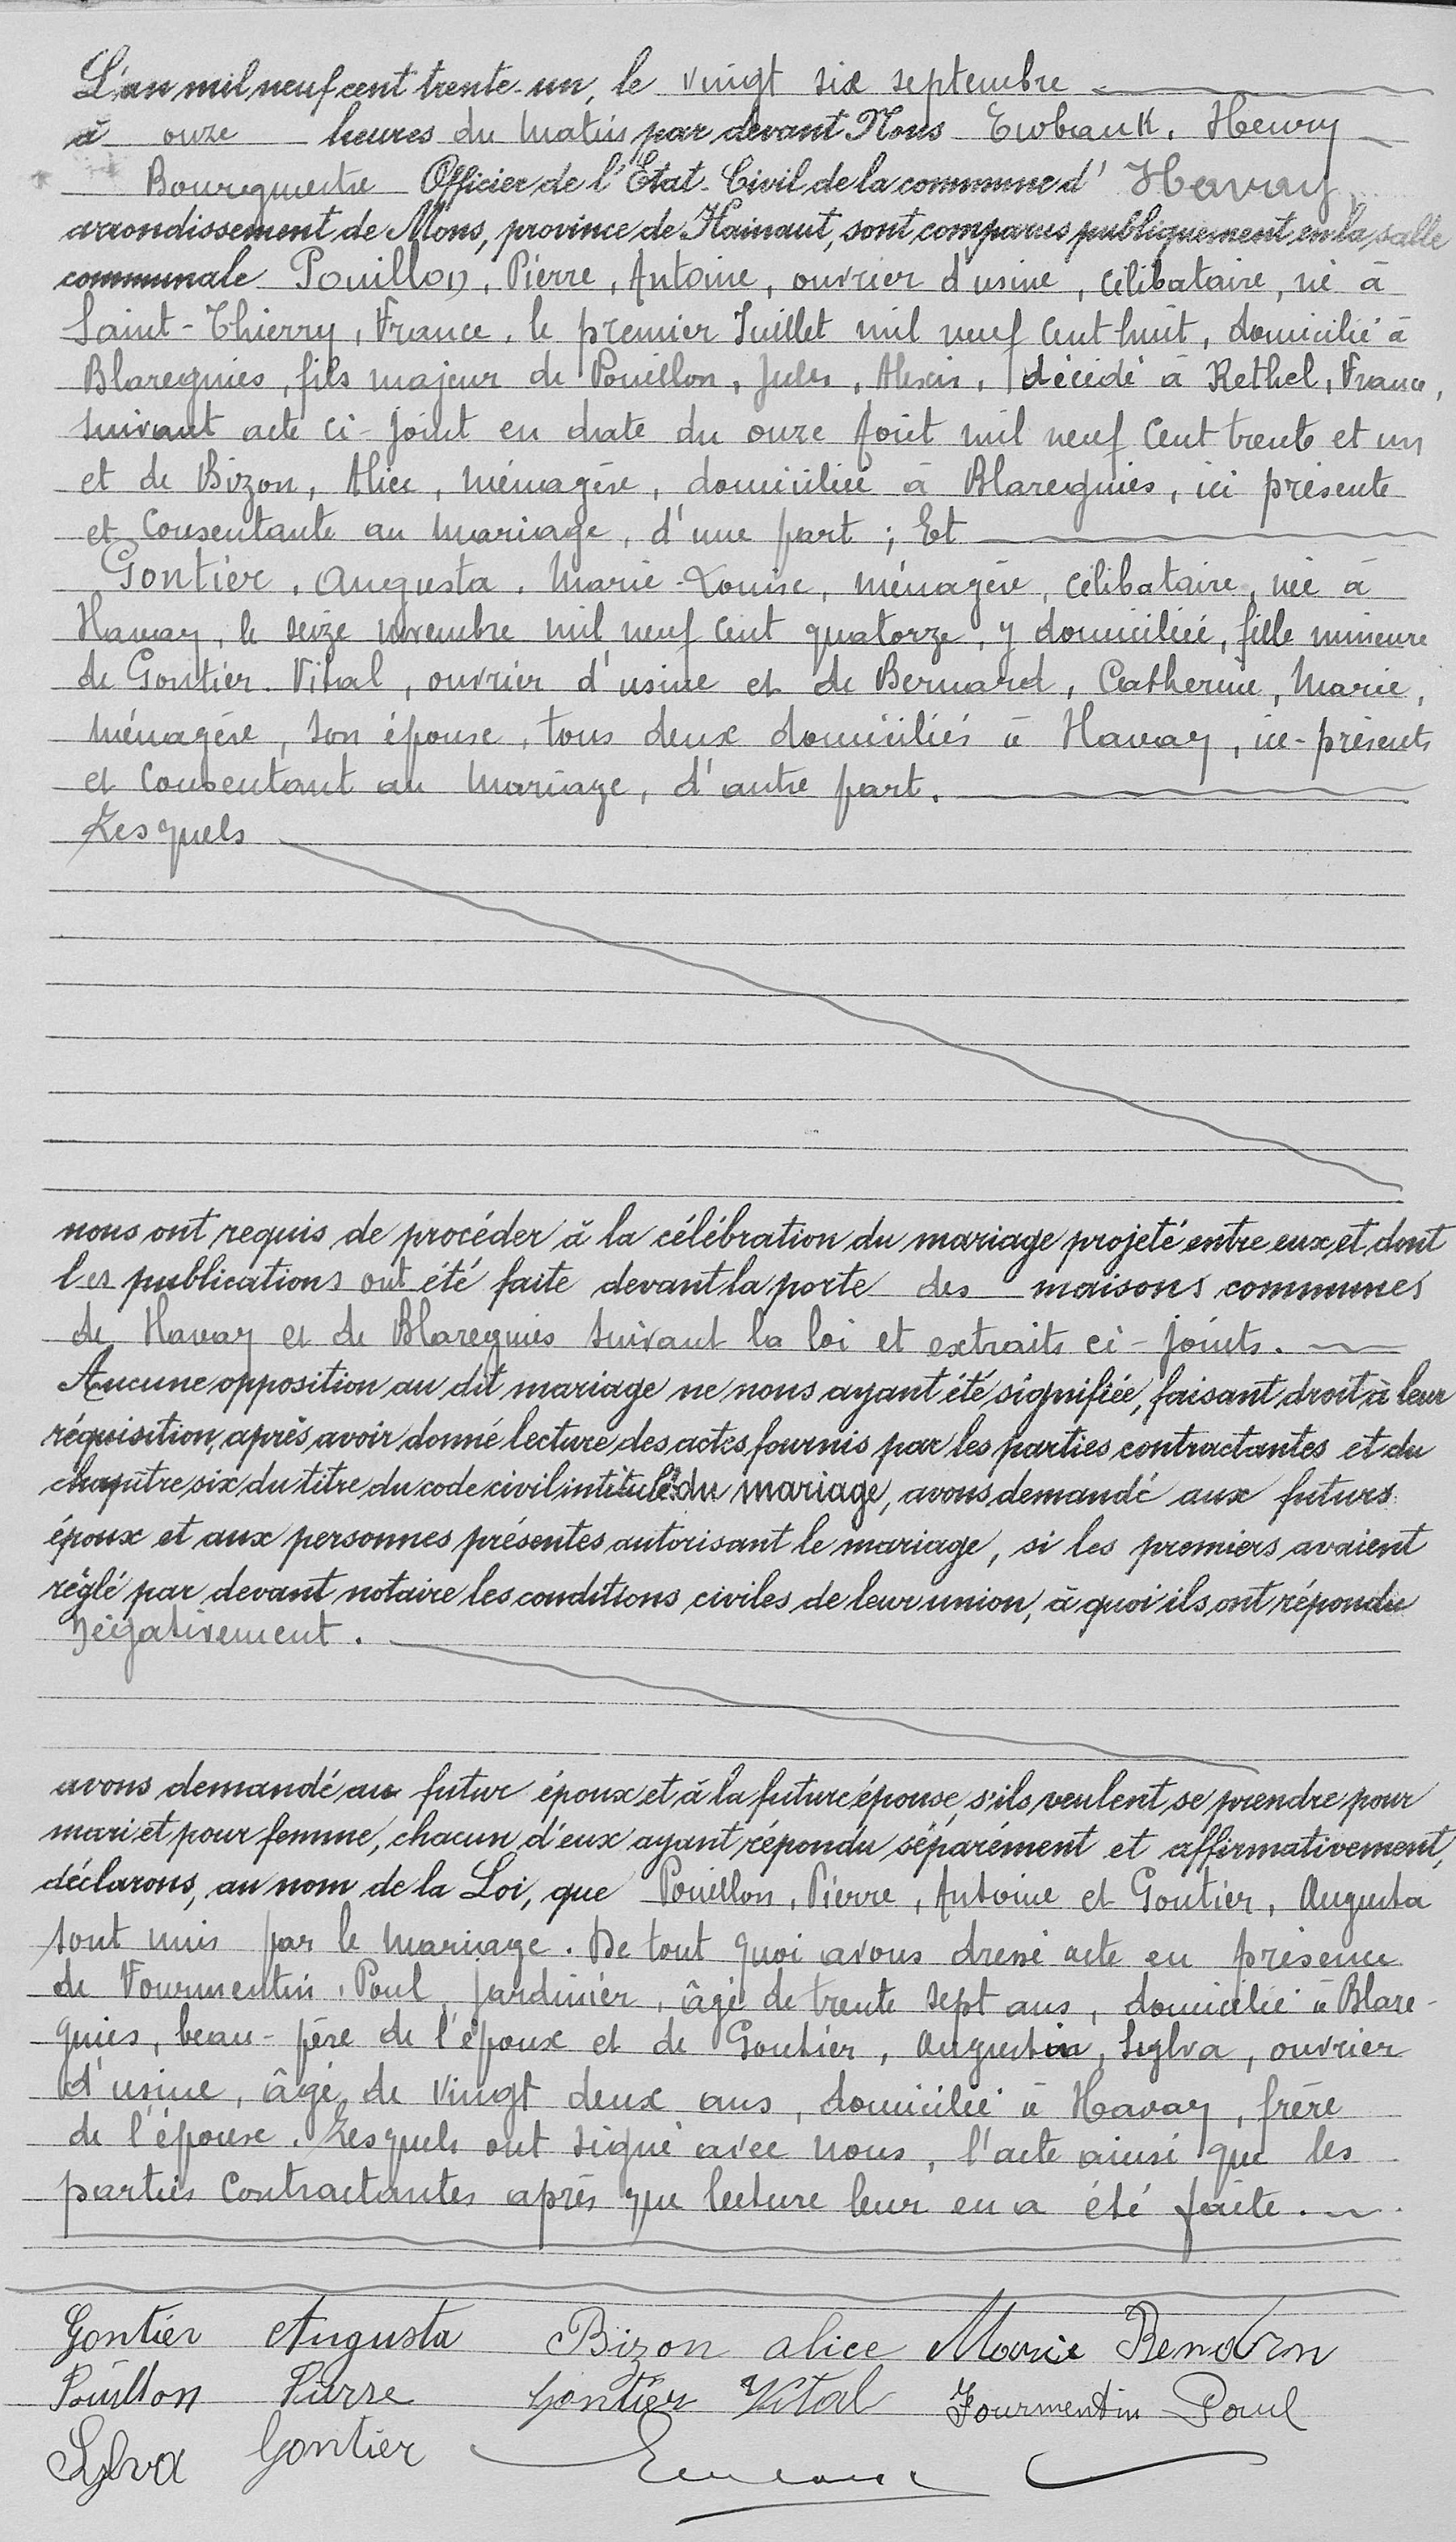 L'an mil neuf cent trente-un, le vingt six septembre
à onze heures du matin par devant Nous Ewbank, Henry
Bourgmestre Officier de l'Etat-Civil de la commune d' Havay,
arrondissement de Mons, province de Hainaut, sont comparus publiquement en la salle
communale Pouillon, Pierre, Antoine, ouvrier d'usine, célibataire, né à
Saint-Thierry, France, le premier Juillet mil neuf cent huit, domicilié à
Blaregnies, fils majeur de Pouillon, Jules, Alexis, décédé à Rethel, France,
suivant acte ci-joint en date du onze Août mil neuf cent trente et un
et de Bizon, Alice, ménagère, domiciliée à Blaregnies, ici présente
et consentante au mariage, d'une part ; Et
Gontier, Augusta, Marie-Louise, ménagère, célibataire, née à
Havay, le seize novembre mil neuf cent quatorze, y domiciliée, fille mineure
de Gontier Vital, ouvrier d'usine et de Bernard, Catherine, Marie,
ménagère, son épouse, tous deux domiciliés à Havay, ici-présents
et consentant au mariage, d'autre part.
Lesquels
nous ont requis de procéder à la célébration du mariage projeté entre eux, et dont
les publications ont été faite devant la porte des maisons communes
de Havay et de Blaregnies suivant la loi et extraits ci-joints.
Aucune opposition au dit mariage ne nous ayant été signifiée, faisant droit à leur
réquisition, après avoir donné lecture des actes fournis par les parties contractantes et du
chapitre six du titre du code civil intitulé: du mariage, avons demandé aux futurs
époux et aux personnes présentes autorisant le mariage, si les premiers avaient
réglé par devant notaire les conditions civiles de leur union, à quoi ils ont répondu
négativement.
avons demandé au futur époux et à la future épouse s'ils veulent se prendre pour
mari et pour femme, chacun d'eux ayant répondu séparément et affirmativement,
déclarons, au nom de la Loi, que Pouillon, Pierre, Antoine et Gontier, Augusta
sont unis par le mariage. De tout quoi avons dressé acte en présence
de Fourmentin, Paul, jardinier, âgé de trente sept ans, domicilié à Blare-
gnies, beau-père de l'époux et de Gontier, Augustin, Sylva, ouvrier
d'usine, âgé de vingt deux ans, domicilié à Havay, frère
de l'épouse. Lesquels ont signé avec nous, l'acte ainsi que les
parties contractantes après que lecture leur en a été faite.
Gontier Augusta Bizon alice Marie Benarn
Pouillon Pierre Gontier Vital Fourmentin Paul
Sylva Gontier